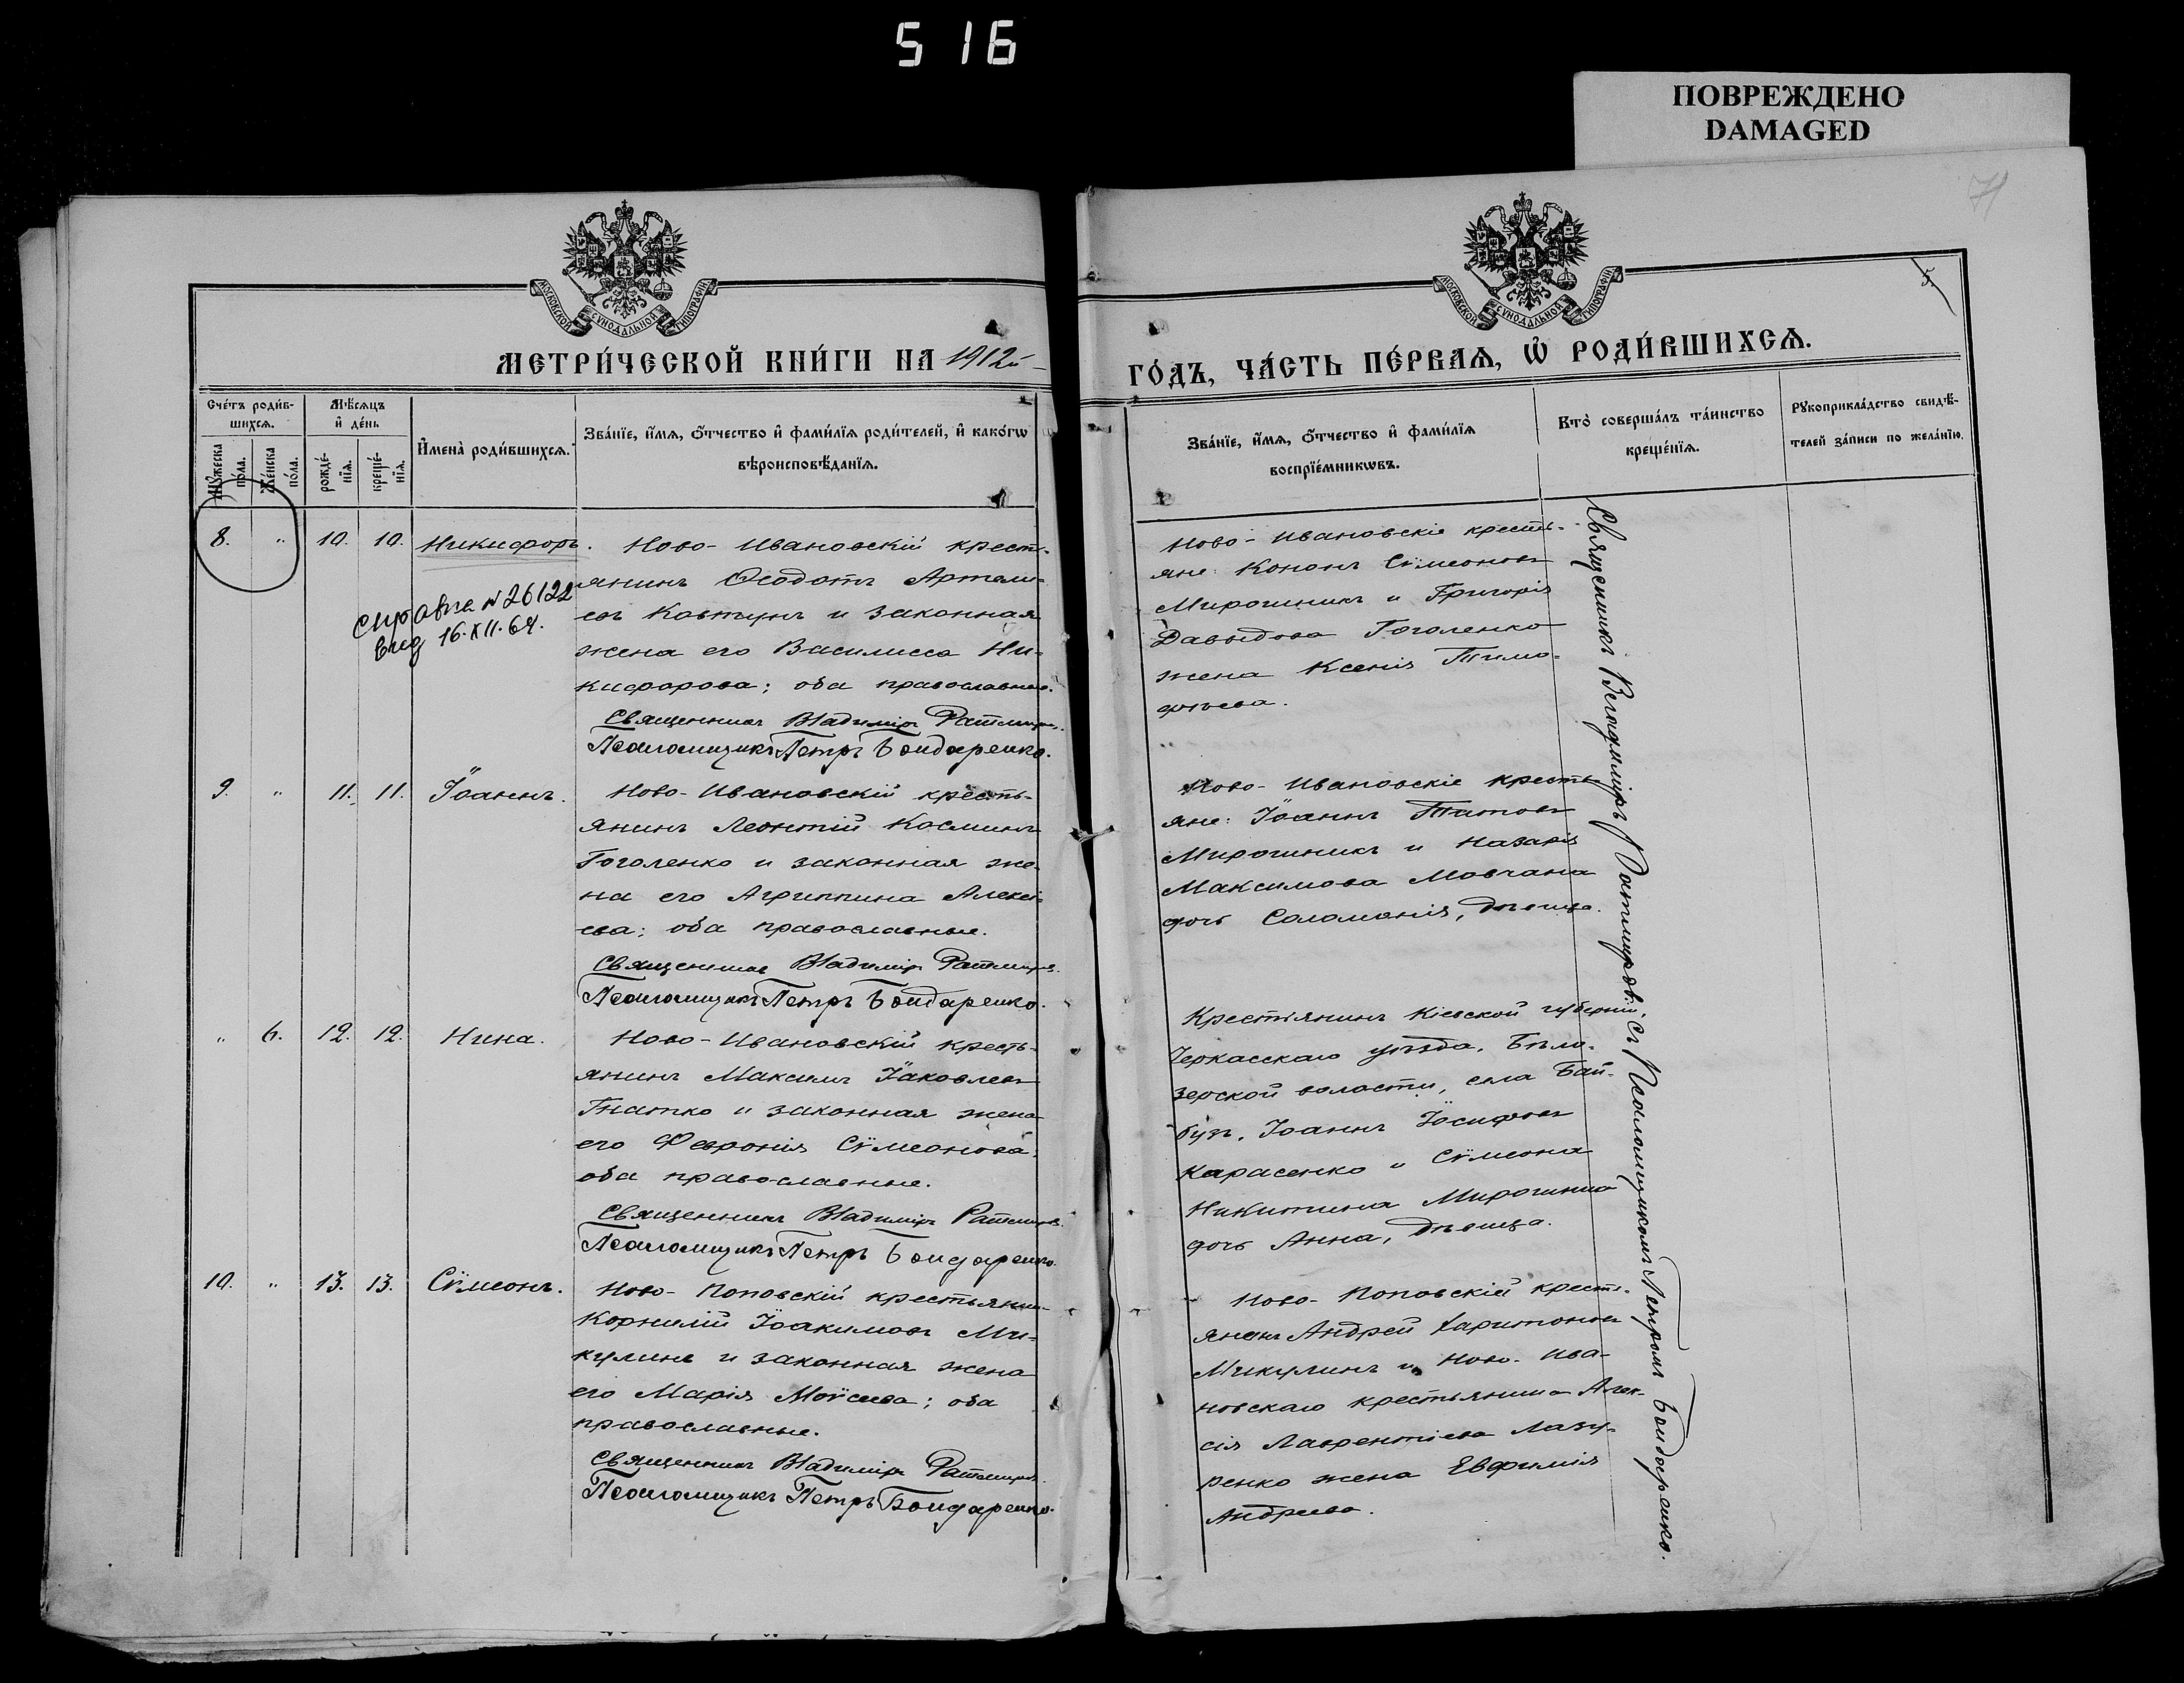 516
ПОВРЕЖДЕНО
DAMAGED
71
5.
МОСКОВСКОЙ СѴНОДАЛЬНОЙ ТИПОГРАФІИ
МОСКОВСКОЙ СѴНОДАЛЬНОЙ ТИПОГРАФІИ
МЕТРИ́ЧЕСКОЙ КНИ́ГИ НА 1912й
ГО́ДЪ, ЧА́СТЬ ПЕ́РВАѦ, Ѡ҆ РОДИ́ВШИХСѦ.
Сче́тъ роди́в-
шихсѧ.
Мꙋ́жеска по́ла.
Же́нска по́ла.
Мѣ́сѧцъ
и҆ де́нь
рожде́-нїѧ.
креще́-нїѧ.
И҆мена̀ роди́вшихсѧ.
Зва́нїе, и҆́мѧ, ѻ҆́тчество и҆ фами́лїѧ роди́телей, и҆ како́гѡ
вѣроисповѣ́данїѧ.
Зва́нїе, и҆́мѧ, ѻ҆́тчество и҆ фами́лїѧ
воспрїе́мникѡвъ.
Кто̀ соверша́лъ та́инство
креще́нїѧ.
Рꙋкоприкла́дство свидѣ́-
телей за́писи по жела́нїю.
8. " 10. 10. Никифоръ.
Справка № 26122
выд 16.XII.64.
Ново-Ивановскій кресть-
янинъ Ѳеодотъ Артемі-
евъ Ковтунъ и законная
жена его Василисса Ни-
кифорова; оба православные.
Священникъ Владиміръ Ратмировъ.
Псаломщикъ Петръ Бондаренко.
Ново-Ивановскіе кресть-
яне: Кононъ Сѵмеоновъ
Мирошникъ и Григорія
Давыдова Гоголенко
жена Ксенія Тимо-
фѣева.
9. " 11. 11. Іоаннъ.
Ново-Ивановскій кресть-
янинъ Леонтій Косминъ
Гоголенко и законная же-
на его Агриппина Алексі-
ева; оба православные.
Священникъ Владиміръ Ратмировъ.
Псаломщикъ Петръ Бондаренко.
Ново-Ивановскіе кресть-
яне: Іоаннъ Титовъ
Мирошникъ и Назарія
Максимова Мовчана
дочь Соломонія, дѣвица.
" 6. 12. 12. Нина.
Ново-Ивановскій кресть-
янинъ Максимъ Іаковлевъ
Гнатко и законная жена
его Феѵронія Сѵмеонова;
оба православные.
Священникъ Владиміръ Ратмировъ.
Псаломщикъ Петръ Бондаренко.
Крестьянинъ Кіевской губерніи,
Черкасскаго уѣзда, Бѣло-
зерской волости, села Бай-
бузъ, Іоаннъ Іосифовъ
Карасенко и Сѵмеона
Никитина Мирошника
дочь Анна, дѣвица.
10. " 13. 13. Сѵмеонъ.
Ново-Поповскій крестьянинъ
Корнилій Іоакимовъ Ми-
кулинъ и законная жена
его Марія Моѵсеева; оба
православные.
Священникъ Владиміръ Ратмировъ.
Псаломщикъ Петръ Бондаренко.
Ново-Поповскій кресть-
янинъ Андрей Харитоновъ
Микулинъ и Ново-Ива-
новскаго крестьянина Алек-
сія Лаврентіева Лазу-
ренко жена Евфимія
Андреева.
Священникъ Владиміръ Ратмировъ съ Псаломщикомъ Петромъ Бондаренко.